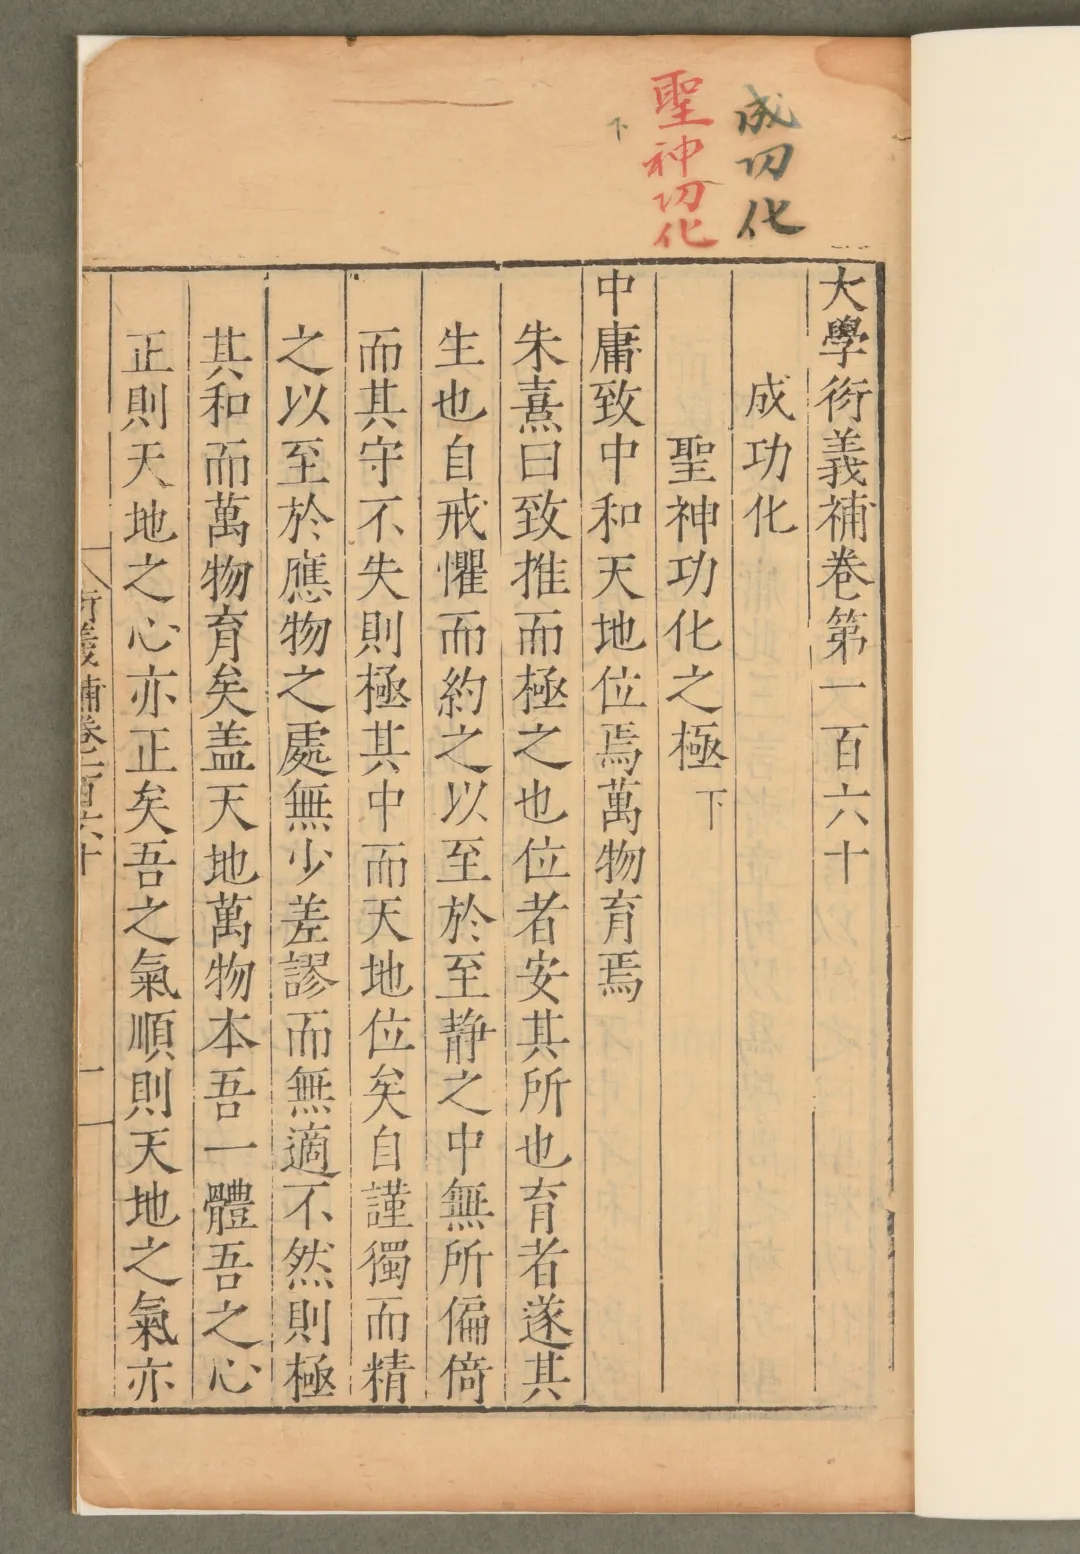 成功化
聖神功化
下
大學衍義補卷第一百六十
成功化
聖神功化之極下
中庸致中和天地位焉萬物育焉
朱熹曰致推而極之也位者安其所也育者遂其
生也自戒懼而約之以至於至静之中無所偏倚
而其守不失則極其中而天地位矣自謹獨而精
之以至於應物之處無少差謬而無適不然則極
其和而萬物育矣盖天地萬物本吾一體吾之心
正則天地之心亦正矣吾之氣順則天地之氣亦
衍義補卷一百六十 一